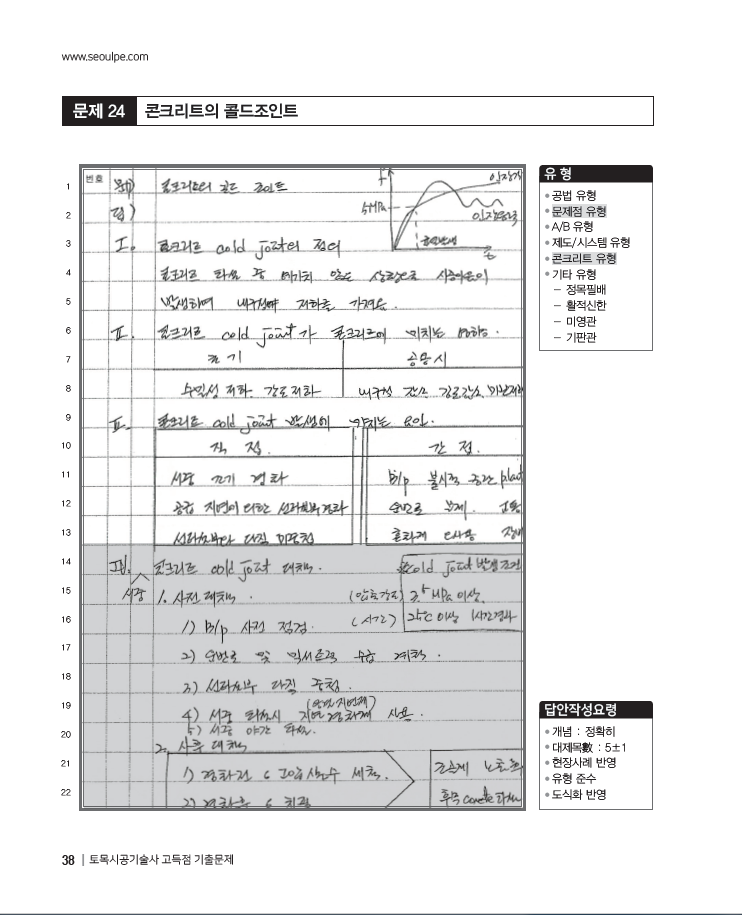 www.seoulpe.com
문제 24 콘크리트의 콜드조인트
번호
문) 콘크리트의 콜드 조인트
답)
5MPa
1
2
3
4
5
6
7
8
9
10
11
12
13
14
15
16
17
18
19
20
21
22
I. 콘크리트 cold joint의 정의
콘크리트 타설 중 예기치 않은 상황으로 시공이음이
발생하여 내구성에 저하를 가져옴.
II. 콘크리트 cold joint가 콘크리트에 미치는 영향.
초기 공용시
수밀성 저하. 강도저하 내구성 감소 강도감소
III. 콘크리트 cold joint 발생에 미치는 요인.
직접. 간접.
서중 조기 경화 B/p 불시적 중단 plant
공급 지연에 의한 선타설부 경화 운반로 문제. 교통
선타설부와 다짐 미중첩
IV. 콘크리트 cold joint 대책.
서중
cold joint 발생조건
(압축강도) 3.5 MPa 이상.
(시간) 25°C 이상 1시간경과
1. 사전 대책.
1) B/p 사전 점검.
2) 운반로 및 수급 계획.
3) 선타설부 다짐 중첩.
4) 서중 타설시 지연 경화제 사용.
5) 서중 야간 타설.
2. 사후 대책
1) 경화전 세척.
2) 경화후
유 형
• 공법 유형
• 문제점 유형
• A/B 유형
• 제도/시스템 유형
• 콘크리트 유형
• 기타 유형
– 정목필배
– 활적신한
– 미영관
– 기판관
답안작성요령
• 개념 : 정확히
• 대제목數 : 5±1
• 현장사례 반영
• 유형 준수
• 도식화 반영
38 | 토목시공기술사 고득점 기출문제